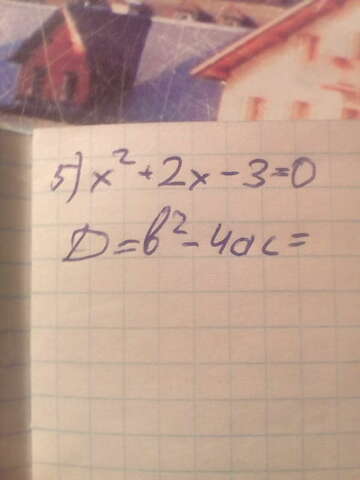 5) x² + 2x - 3 = 0
D = b² - 4ac =